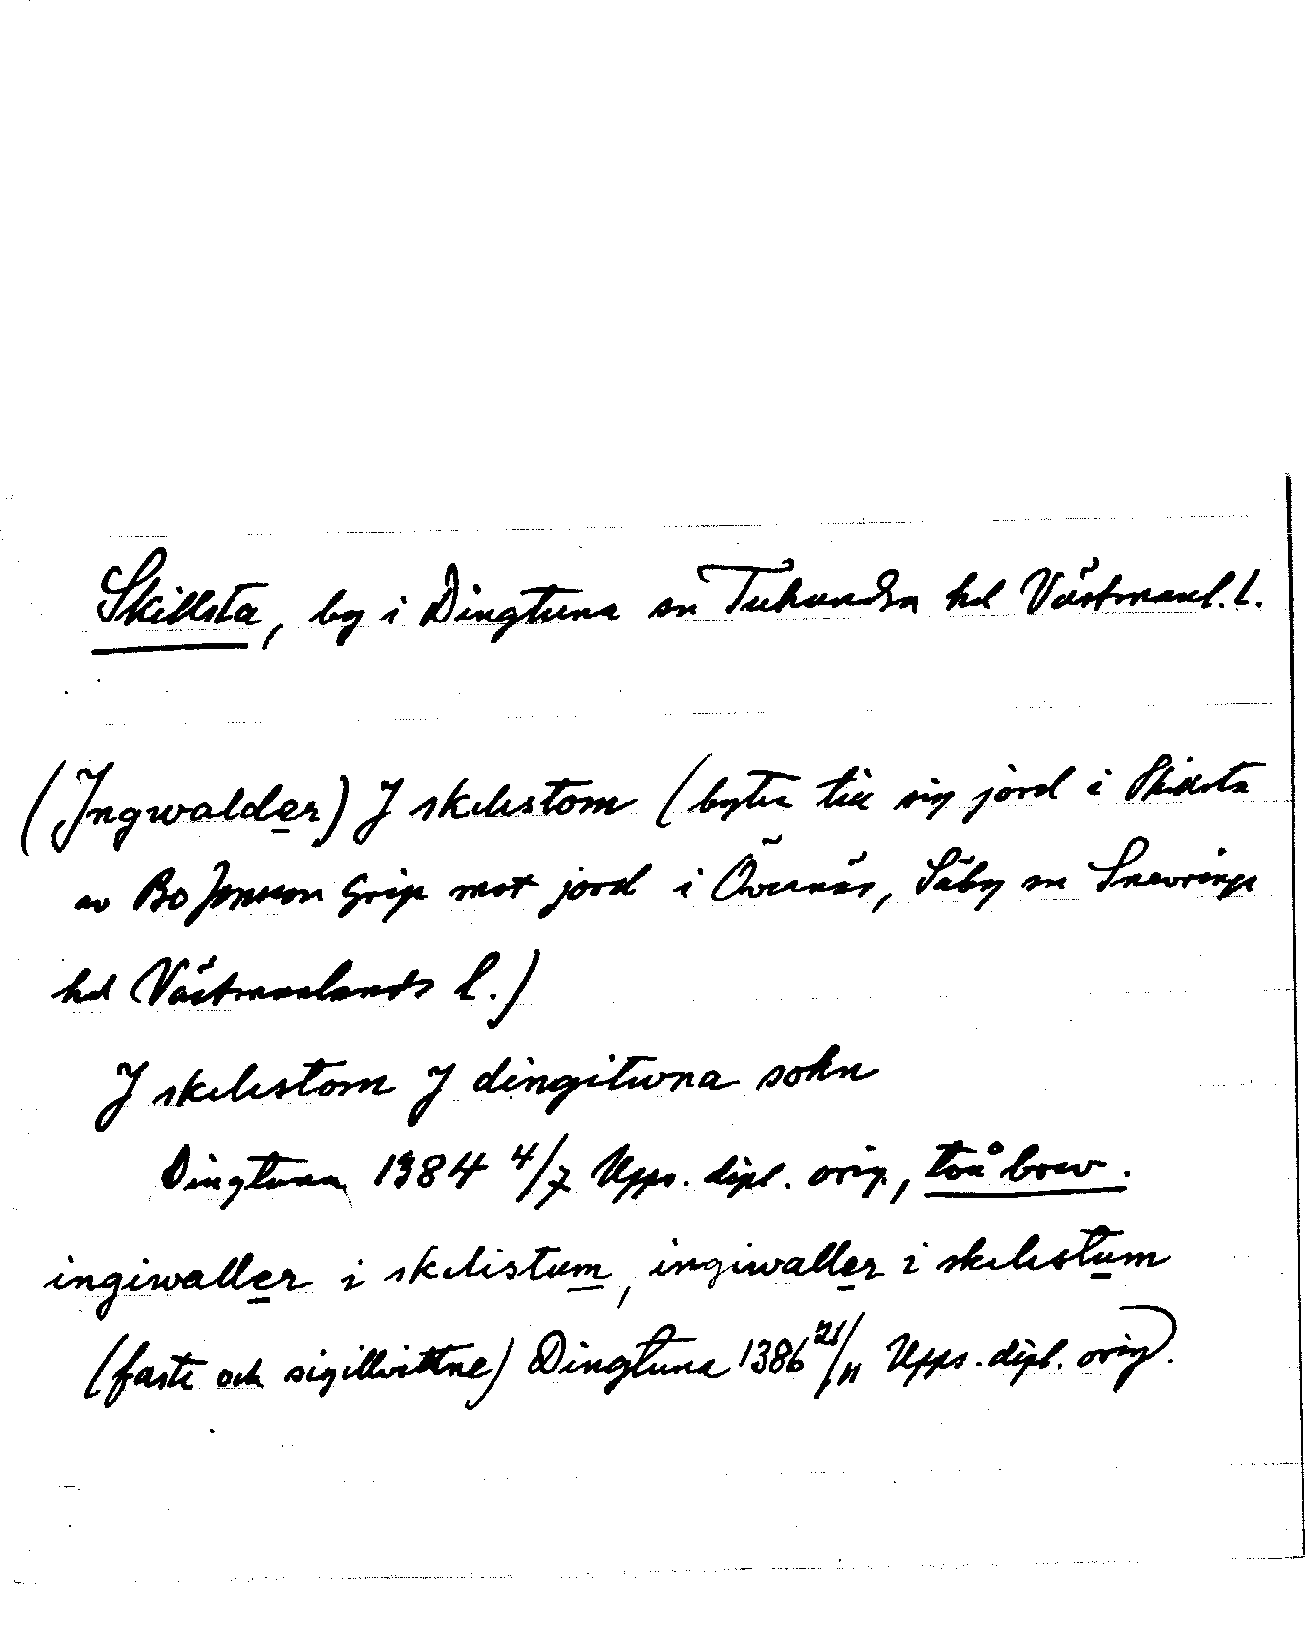 Skillsta, by i Dingtuna sn Tuhundra hd Västmanl. l.
(Jngwalder) J skilistom (byter till sig jord i Skillsta
av Bo Jonsson Grip mot jord i Övernäs, Säby sn Snevringe
hd Västmanlands l.)
J skilistom J dingituna sokn
Dingtuna 1384 4/7 Upps. dipl. orig, två brev.
ingiwaller i skilistum, ingiwaller i skilistum
(faste och sigillvittne) Dingtuna 1386 21/11 Upps. dipl. orig).